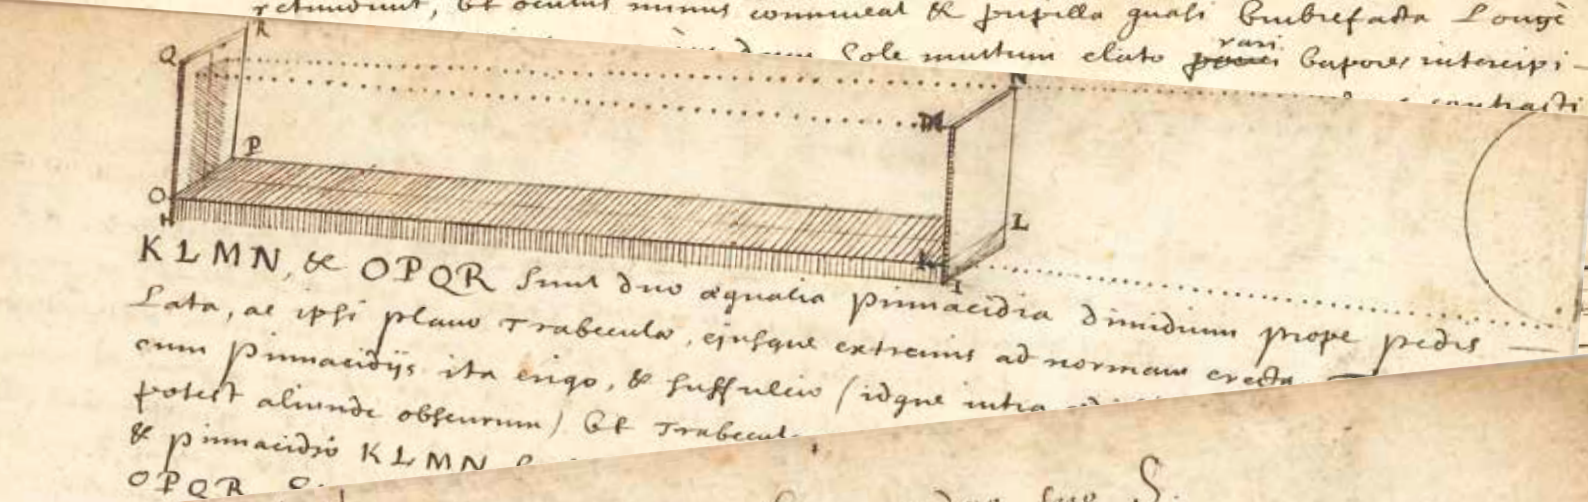 retundunt, ut oculus minus conniveat & pupilla quasi umbrefacta Longè
Sole multum elato rari vapores intercipi-
contracti
Q R
N
M
P
O
H
L
K
I
KLMN, & OPQR sunt duo æqualia pinnacidia dimidium prope pedis
Lata, ac ipsi plano Trabeculæ, ejusque extremis ad normam erecta
cum pinnacidijs ita erigo, & suffulcio (idque intra
potest aliunde obscurum) ut Trabecul
& pinnacidio KLMN
OPQR